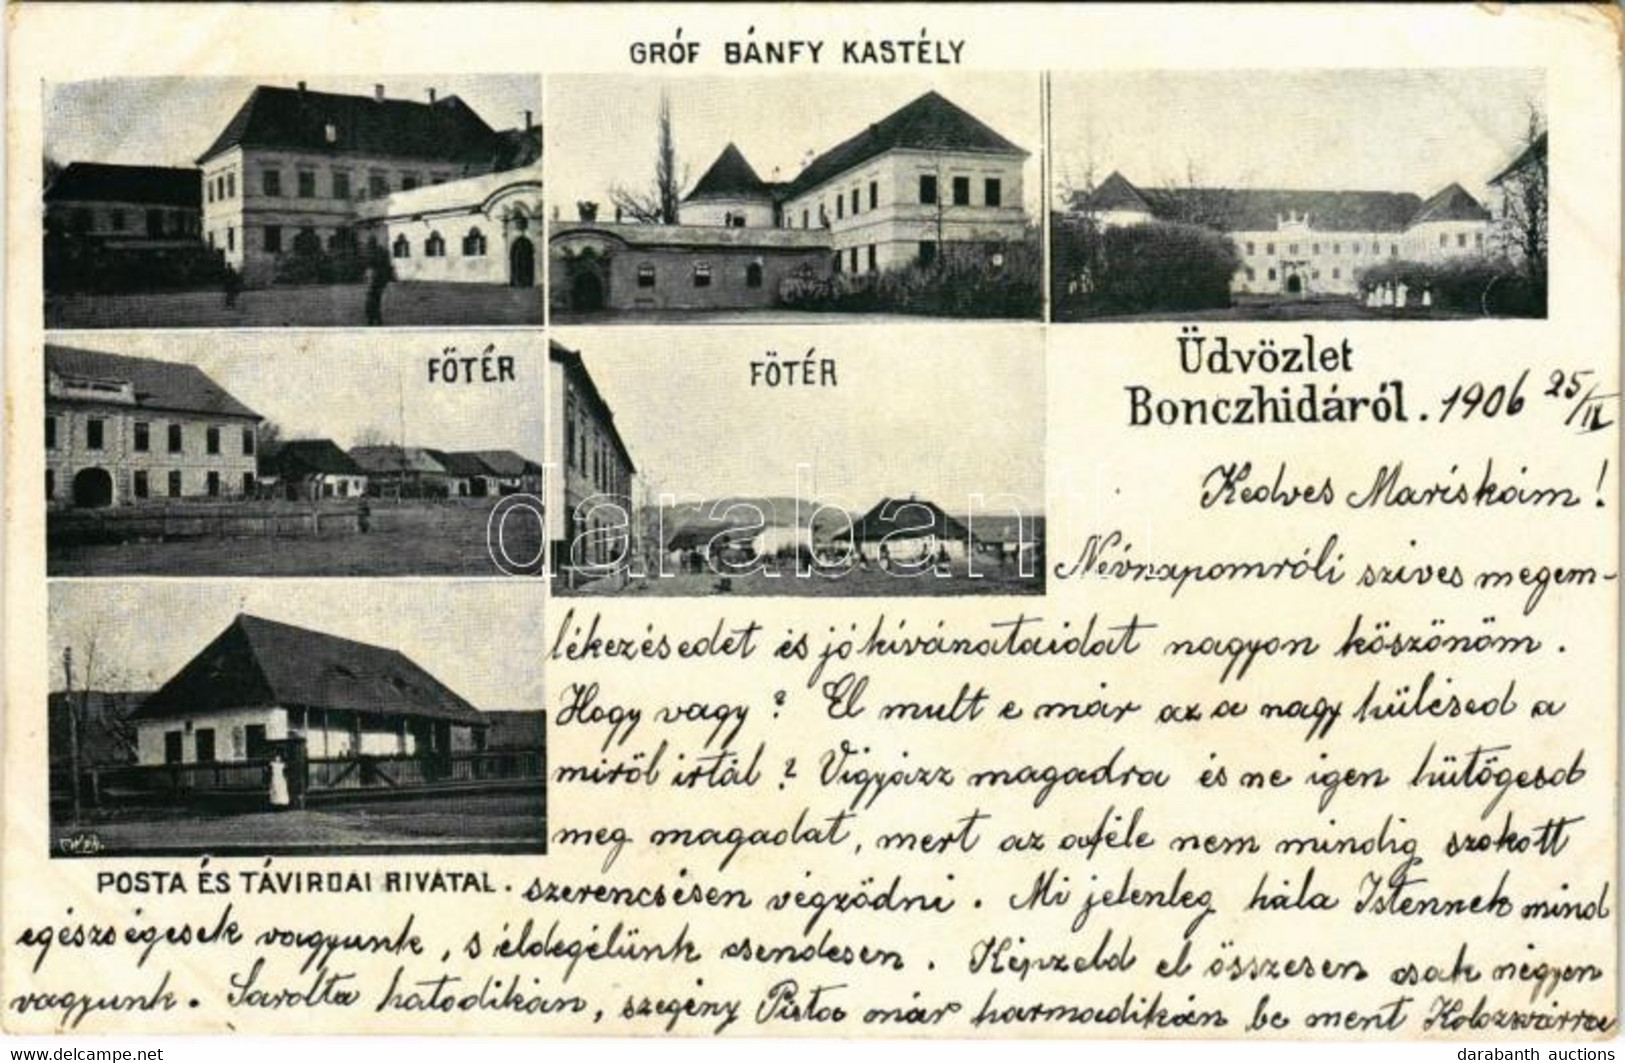 GRÓF BÁNFY KASTÉLY
FŐTÉR
FŐTÉR
Üdvözlet
Bonczhidáról. 1906 25/IX
Kedves Mariskám!
Névnapomróli szives megem-
lékezésedet és jó kívánataidat nagyon köszönöm.
Hogy vagy? El mult e már az a nagy hülésed a
miröl irtál? Vigyázz magadra és ne igen hütögesd
meg magadat, mert az aféle nem mindig szokott
POSTA ÉS TÁVIRDAI HIVATAL. szerencsésen végződni. Mi jelenleg hála Istennek mind
egészségesek vagyunk, s éldegélünk csendesen. Képzeld el összesen csak négyen
vagyunk. Sarolta hatodikán, szegény Pista már harmadikán be ment Kolozsvárra
darabanth
delcampe.net
darabanth auctions